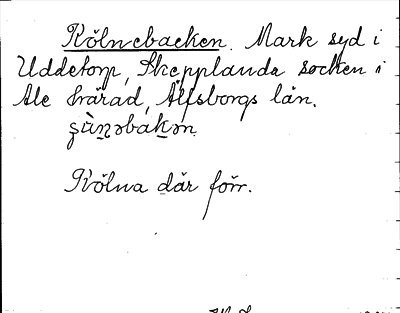 Kölnebacken. Mark syd i
Uddetorp, Skepplanda socken i
Ale härad, Älfsborgs län.
Kölna där förr.